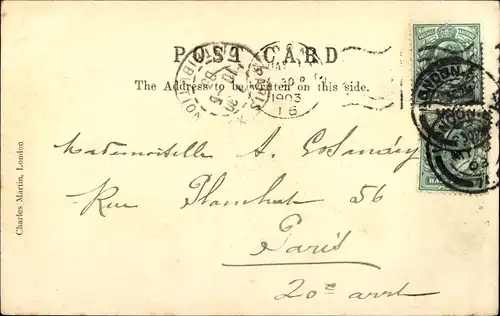 POST CARD
The Address to be written on this side.
PARIS
DISTRIBUTION
1903
LONDON
LONDON
Mademoiselle A.
Rue Planchat 56
Paris
20e arrt
Charles Martin, London